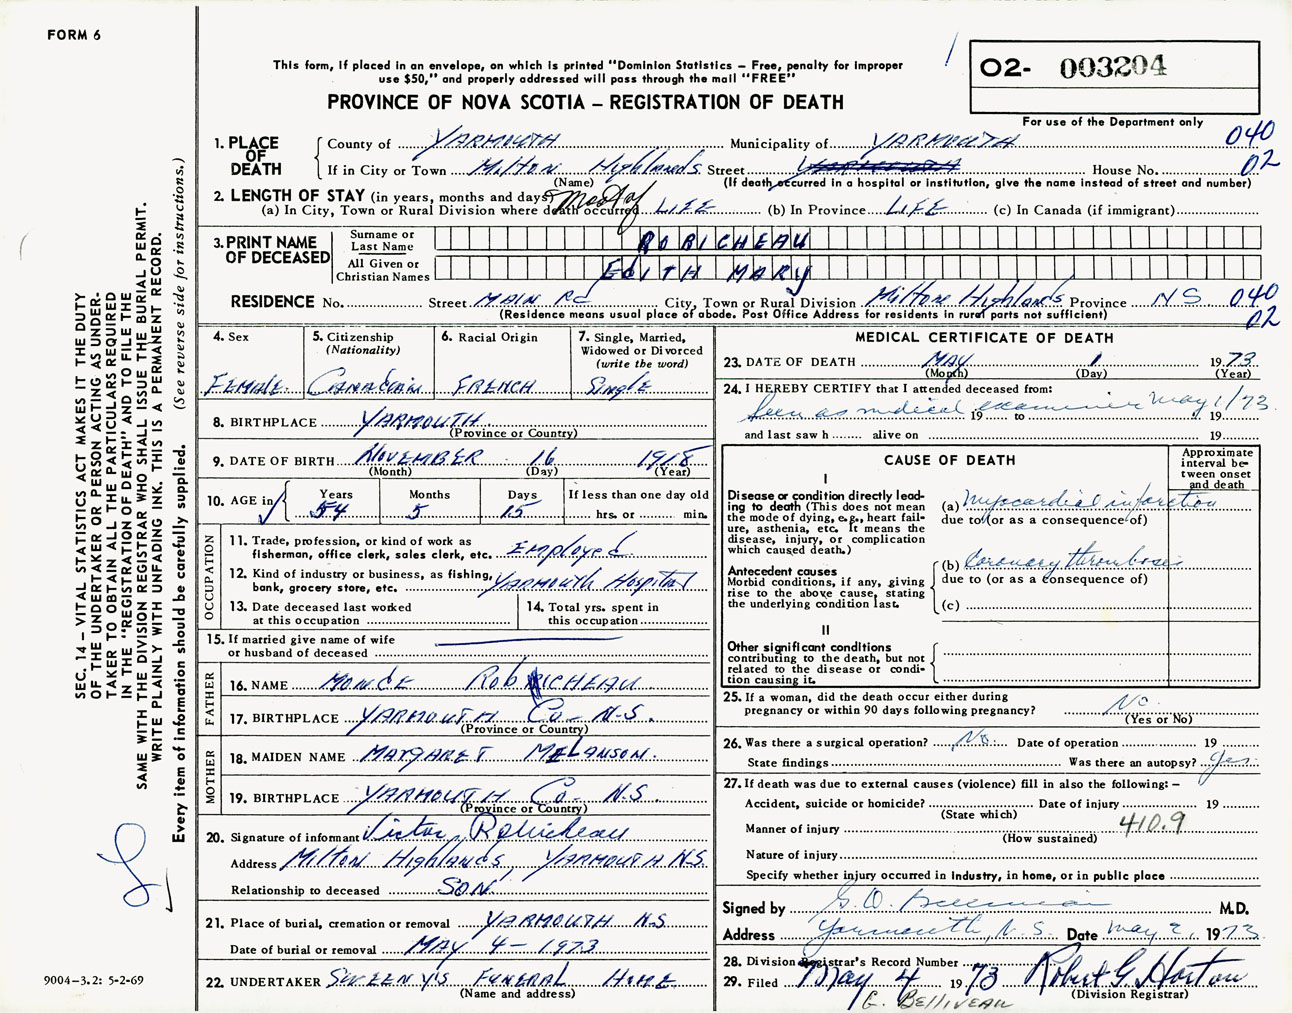 FORM 6
This form, if placed in an envelope, on which is printed "Dominion Statistics – Free, penalty for improper
use $50," and properly addressed will pass through the mail "FREE"
PROVINCE OF NOVA SCOTIA – REGISTRATION OF DEATH
02- 003204
For use of the Department only
1. PLACE OF DEATH
County of YARMOUTH Municipality of YARMOUTH 040
If in City or Town Milton Highlands Street House No. 02
(Name) (If death occurred in a hospital or institution, give the name instead of street and number)
2. LENGTH OF STAY (in years, months and days)
(a) In City, Town or Rural Division where death occurred Most of LIFE (b) In Province LIFE (c) In Canada (if immigrant)
3. PRINT NAME OF DECEASED
Surname or Last Name ROBICHEAU
All Given or Christian Names EDITH MARY
RESIDENCE No. Street MAIN RD City, Town or Rural Division Milton Highlands Province NS 040
(Residence means usual place of abode. Post Office Address for residents in rural parts not sufficient) 02
4. Sex
Female
5. Citizenship
(Nationality)
Canadian
6. Racial Origin
FRENCH
7. Single, Married,
Widowed or Divorced
(write the word)
Single
8. BIRTHPLACE YARMOUTH
(Province or Country)
9. DATE OF BIRTH NOVEMBER 16 1918
(Month) (Day) (Year)
10. AGE in
Years 54
Months 5
Days 15
If less than one day old
hrs. or min.
OCCUPATION
11. Trade, profession, or kind of work as
fisherman, office clerk, sales clerk, etc. Employed
12. Kind of industry or business, as fishing,
bank, grocery store, etc. Yarmouth Hospital
13. Date deceased last worked
at this occupation
14. Total yrs. spent in
this occupation
15. If married give name of wife
or husband of deceased
FATHER
16. NAME ROBICHEAU
17. BIRTHPLACE YARMOUTH Co- N.S.
(Province or Country)
MOTHER
18. MAIDEN NAME MARGARET MELANSON.
19. BIRTHPLACE YARMOUTH Co- N.S.
(Province or Country)
20. Signature of informant Victor Robicheau
Address Milton Highlands, YARMOUTH N.S.
Relationship to deceased SON.
21. Place of burial, cremation or removal YARMOUTH N.S
Date of burial or removal MAY 4 – 1973
22. UNDERTAKER SWEENY'S FUNERAL HOME
(Name and address)
MEDICAL CERTIFICATE OF DEATH
23. DATE OF DEATH MAY 1 1973
(Month) (Day) (Year)
24. I HEREBY CERTIFY that I attended deceased from:
Seen as medical examiner May 1/73.
19 to 19
and last saw h alive on 19
CAUSE OF DEATH
Approximate
interval be-
tween onset
and death
I
Disease or condition directly lead-
ing to death (This does not mean
the mode of dying, e.g., heart fail-
ure, asthenia, etc. It means the
disease, injury, or complication
which caused death.)
(a) Myocardial infarction
due to (or as a consequence of)
Antecedent causes
Morbid conditions, if any, giving
rise to the above cause, stating
the underlying condition last.
(b) Coronary thrombosis
due to (or as a consequence of)
(c)
II
Other significant conditions
contributing to the death, but not
related to the disease or condi-
tion causing it.
25. If a woman, did the death occur either during
pregnancy or within 90 days following pregnancy? No
(Yes or No)
26. Was there a surgical operation? No. Date of operation 19
State findings Was there an autopsy? Yes.
27. If death was due to external causes (violence) fill in also the following: –
Accident, suicide or homicide? Date of injury 19
(State which)
Manner of injury 410.9
(How sustained)
Nature of injury
Specify whether injury occurred in industry, in home, or in public place
Signed by G. D. Belliveau M.D.
Address Yarmouth, N.S. Date May 2, 1973.
28. Division Registrar's Record Number
29. Filed May 4 1973 Robert G. Horton
(Division Registrar)
G. BELLIVEAU
SEC. 14 – VITAL STATISTICS ACT MAKES IT THE DUTY
OF THE UNDERTAKER OR PERSON ACTING AS UNDER-
TAKER TO OBTAIN ALL THE PARTICULARS REQUIRED
IN THE "REGISTRATION OF DEATH" AND TO FILE THE
SAME WITH THE DIVISION REGISTRAR WHO SHALL ISSUE THE BURIAL PERMIT.
WRITE PLAINLY WITH UNFADING INK. THIS IS A PERMANENT RECORD.
Every item of Information should be carefully supplied. (See reverse side for instructions.)
9004–3.2: 5-2-69